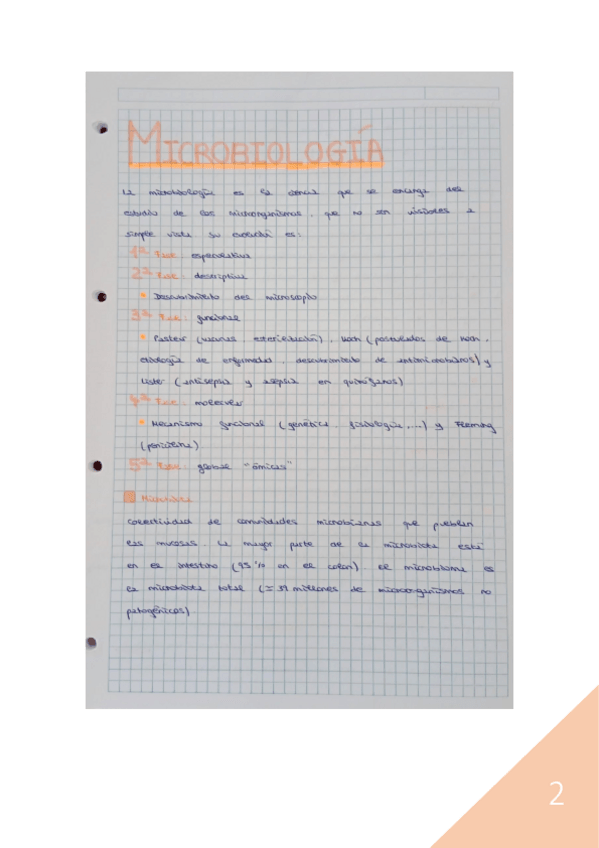 MICROBIOLOGÍA
La microbiología es la ciencia que se encarga del
estudio de los microorganismos, que no son visibles a
simple vista su evolución es:
1ª Fase: especulativa
2ª Fase: descriptiva
• Descubrimiento del microscopio
3ª Fase: funcional
• Pasteur (vacunas, esterilización), Koch (postulados de Koch,
etiología de enfermedad, descubrimiento de antimicrobianos) y
Lister (antisepsia y asepsia en quirófanos)
4ª Fase: molecular
• Mecanismo funcional (genética, fisiología,...) y Fleming
(penicilina)
5ª Fase: global "ómicas"
Microbiota
colectividad de comunidades microbianas que pueblan
las mucosas. La mayor parte de la microbiota está
en el intestino (95% en el colon). El microbioma es
la microbiota total (≃ 39 millones de microorganismos no
patogénicos)
2